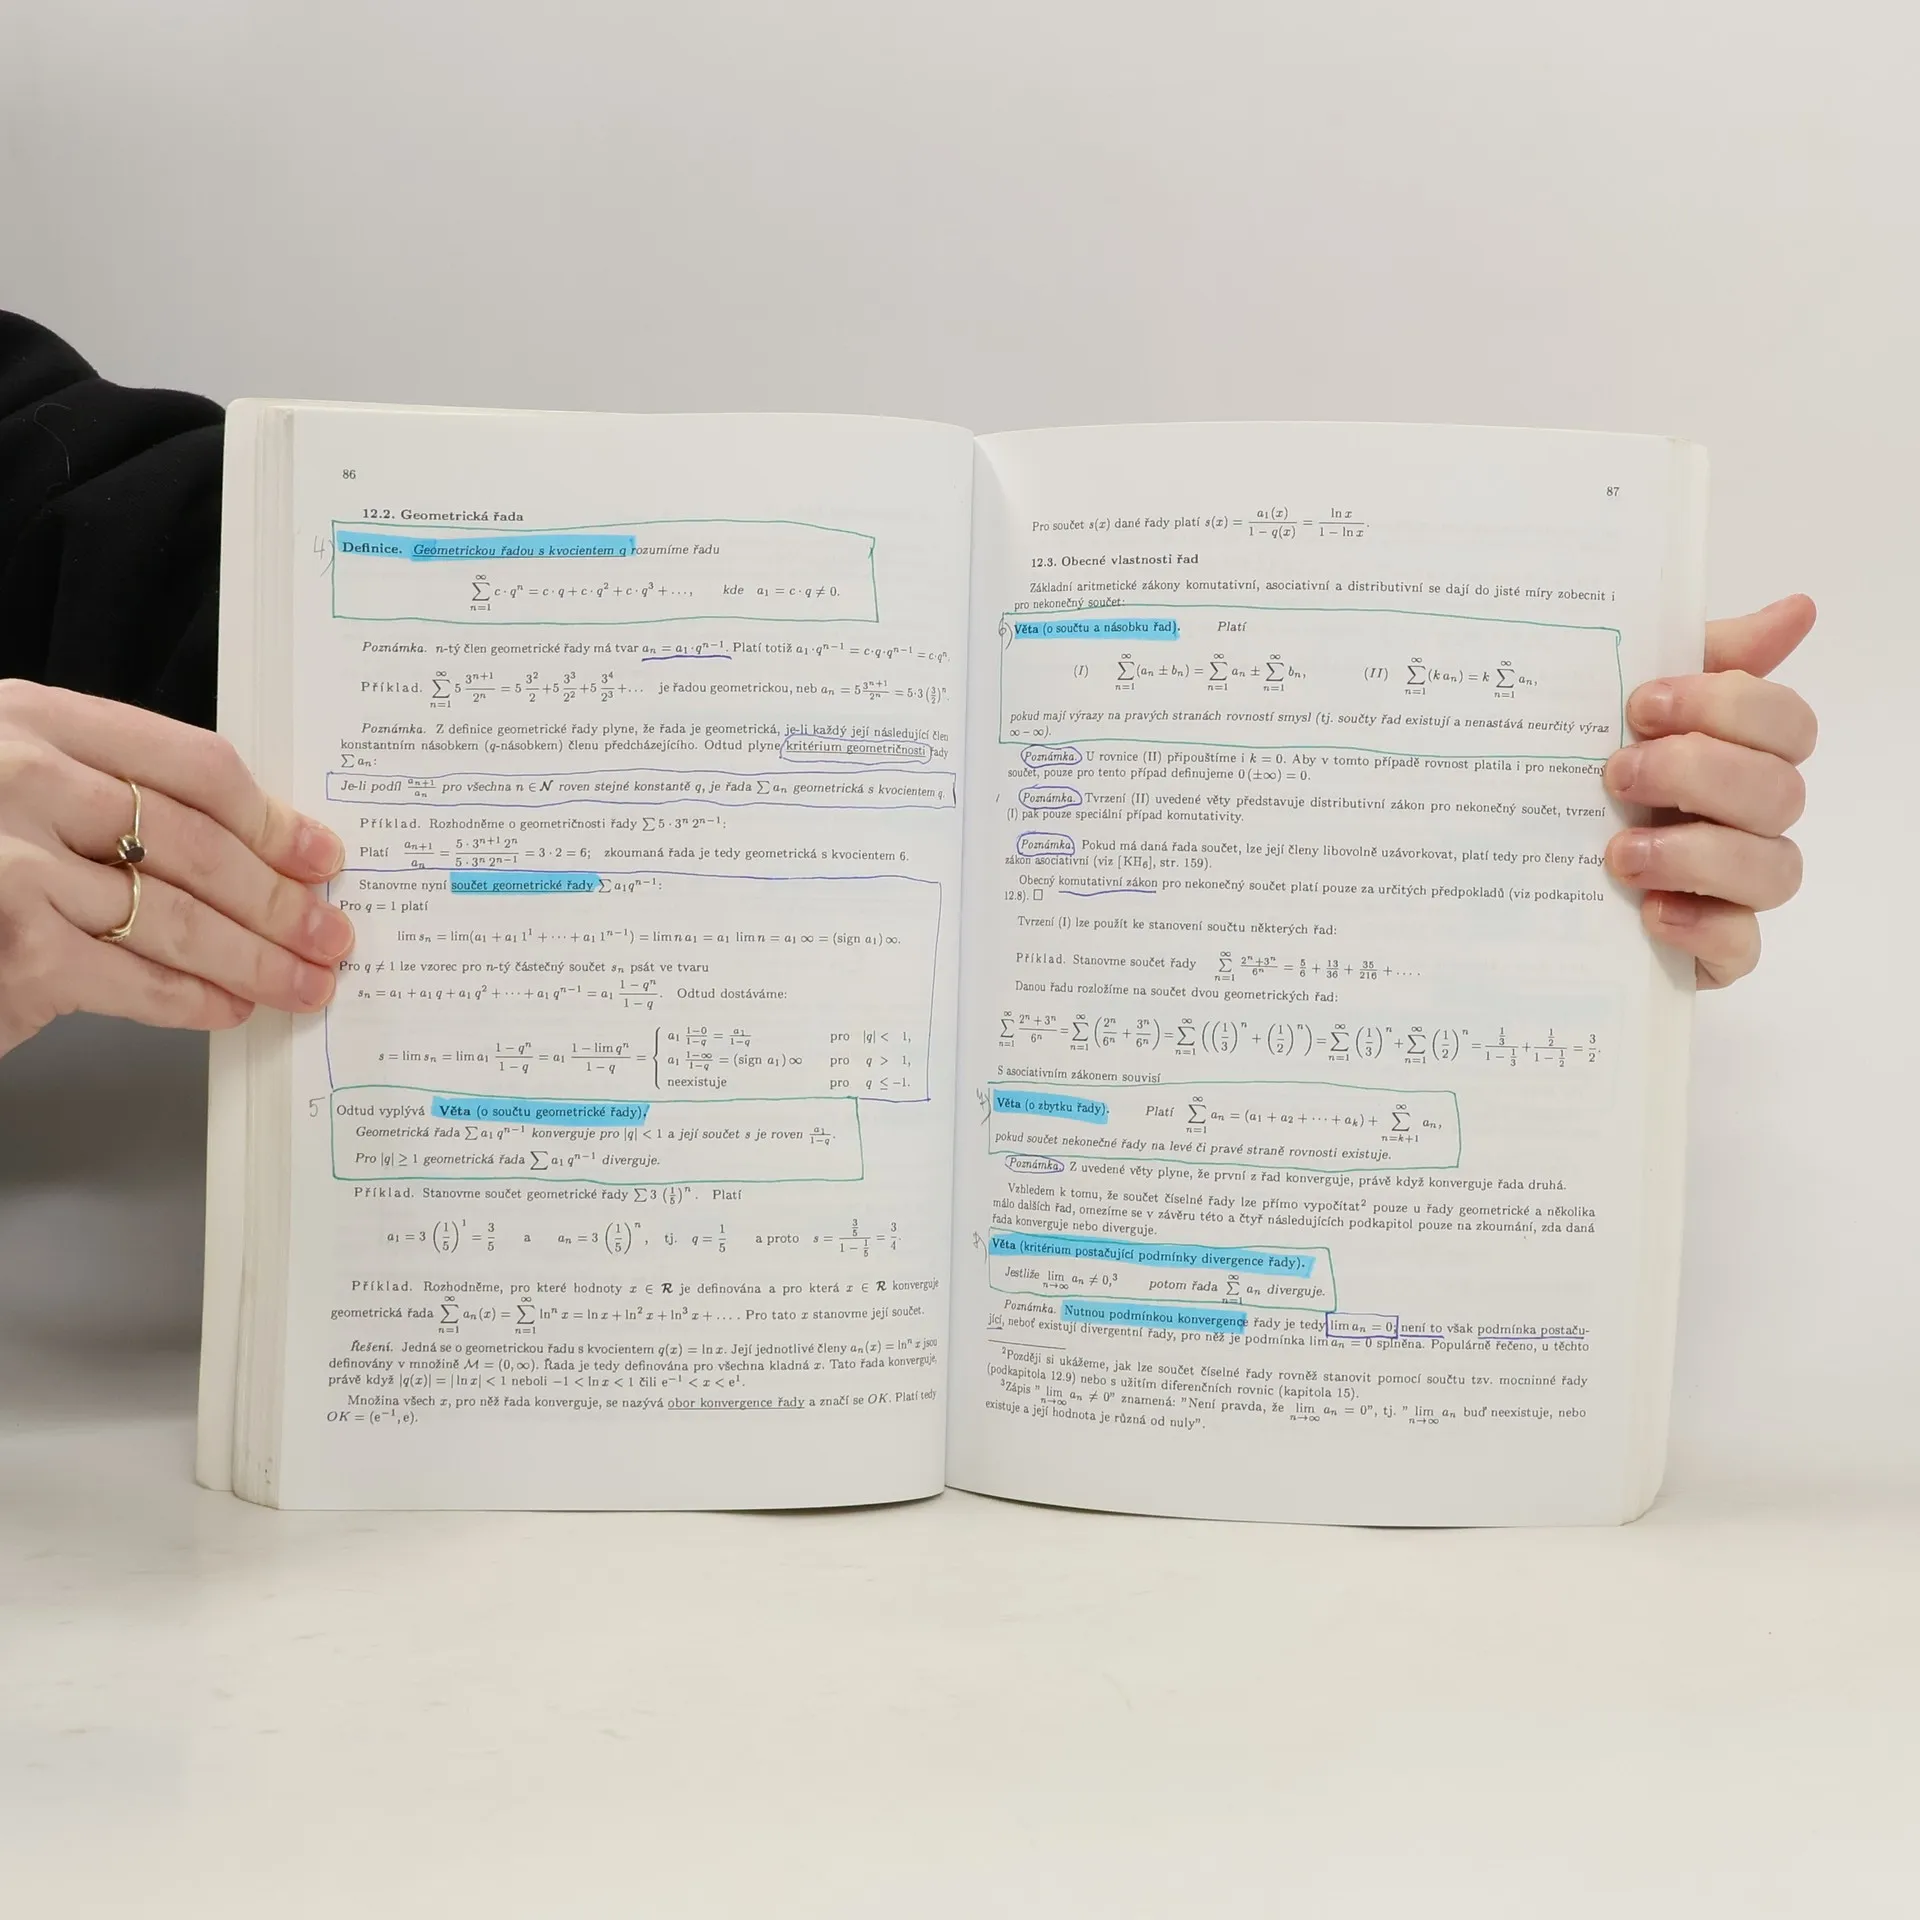 86
12.2. Geometrická řada
4)
Definice. Geometrickou řadou s kvocientem q rozumíme řadu
∑_{n=1}^{∞} c·qⁿ = c·q + c·q² + c·q³ + ..., kde a₁ = c·q ≠ 0.
Poznámka. n-tý člen geometrické řady má tvar aₙ = a₁·qⁿ⁻¹. Platí totiž a₁·qⁿ⁻¹ = c·q·qⁿ⁻¹ = c·qⁿ.
Příklad. ∑_{n=1}^{∞} 5 3ⁿ⁺¹/2ⁿ = 5 3²/2 + 5 3³/2² + 5 3⁴/2³ + ... je řadou geometrickou, neb aₙ = 5 3ⁿ⁺¹/2ⁿ = 5·3 (3/2)ⁿ.
Poznámka. Z definice geometrické řady plyne, že řada je geometrická, je-li každý její následující člen
konstantním násobkem (q-násobkem) členu předcházejícího. Odtud plyne kritérium geometričnosti řady
∑ aₙ:
Je-li podíl aₙ₊₁/aₙ pro všechna n ∈ 𝒩 roven stejné konstantě q, je řada ∑ aₙ geometrická s kvocientem q.
Příklad. Rozhodněme o geometričnosti řady ∑ 5 · 3ⁿ 2ⁿ⁻¹:
Platí aₙ₊₁/aₙ = (5 · 3ⁿ⁺¹ 2ⁿ)/(5 · 3ⁿ 2ⁿ⁻¹) = 3 · 2 = 6; zkoumaná řada je tedy geometrická s kvocientem 6.
Stanovme nyní součet geometrické řady ∑ a₁qⁿ⁻¹:
Pro q = 1 platí
lim sₙ = lim(a₁ + a₁ 1¹ + ··· + a₁ 1ⁿ⁻¹) = lim n a₁ = a₁ lim n = a₁ ∞ = (sign a₁) ∞.
Pro q ≠ 1 lze vzorec pro n-tý částečný součet sₙ psát ve tvaru
sₙ = a₁ + a₁ q + a₁ q² + ··· + a₁ qⁿ⁻¹ = a₁ (1 − qⁿ)/(1 − q). Odtud dostáváme:
s = lim sₙ = lim a₁ (1 − qⁿ)/(1 − q) = a₁ (1 − lim qⁿ)/(1 − q) = { a₁ (1−0)/(1−q) = a₁/(1−q) pro |q| < 1,
a₁ (1−∞)/(1−q) = (sign a₁) ∞ pro q > 1,
neexistuje pro q ≤ −1.
5
Odtud vyplývá Věta (o součtu geometrické řady).
Geometrická řada ∑ a₁ qⁿ⁻¹ konverguje pro |q| < 1 a její součet s je roven a₁/(1−q).
Pro |q| ≥ 1 geometrická řada ∑ a₁ qⁿ⁻¹ diverguje.
Příklad. Stanovme součet geometrické řady ∑ 3 (1/5)ⁿ. Platí
a₁ = 3 (1/5)¹ = 3/5 a aₙ = 3 (1/5)ⁿ, tj. q = 1/5 a proto s = (3/5)/(1 − 1/5) = 3/4.
Příklad. Rozhodněme, pro které hodnoty x ∈ ℛ je definována a pro která x ∈ ℛ konverguje
geometrická řada ∑_{n=1}^{∞} aₙ(x) = ∑_{n=1}^{∞} lnⁿ x = ln x + ln² x + ln³ x + .... Pro tato x stanovme její součet.
Řešení. Jedná se o geometrickou řadu s kvocientem q(x) = ln x. Její jednotlivé členy aₙ(x) = lnⁿ x jsou
definovány v množině ℳ = (0, ∞). Řada je tedy definována pro všechna kladná x. Tato řada konverguje,
právě když |q(x)| = | ln x| < 1 neboli −1 < ln x < 1 čili e⁻¹ < x < e¹.
Množina všech x, pro něž řada konverguje, se nazývá obor konvergence řady a značí se OK. Platí tedy
OK = (e⁻¹, e).
87
Pro součet s(x) dané řady platí s(x) = a₁(x)/(1 − q(x)) = ln x/(1 − ln x).
12.3. Obecné vlastnosti řad
Základní aritmetické zákony komutativní, asociativní a distributivní se dají do jisté míry zobecnit i
pro nekonečný součet:
6)
Věta (o součtu a násobku řad). Platí
(I) ∑_{n=1}^{∞} (aₙ ± bₙ) = ∑_{n=1}^{∞} aₙ ± ∑_{n=1}^{∞} bₙ, (II) ∑_{n=1}^{∞} (k aₙ) = k ∑_{n=1}^{∞} aₙ,
pokud mají výrazy na pravých stranách rovností smysl (tj. součty řad existují a nenastává neurčitý výraz
∞ − ∞).
Poznámka. U rovnice (II) připouštíme i k = 0. Aby v tomto případě rovnost platila i pro nekonečný
součet, pouze pro tento případ definujeme 0 (±∞) = 0.
Poznámka. Tvrzení (II) uvedené věty představuje distributivní zákon pro nekonečný součet, tvrzení
(I) pak pouze speciální případ komutativity.
Poznámka. Pokud má daná řada součet, lze její členy libovolně uzávorkovat, platí tedy pro členy řady
zákon asociativní (viz [KH₆], str. 159).
Obecný komutativní zákon pro nekonečný součet platí pouze za určitých předpokladů (viz podkapitolu
12.8). □
Tvrzení (I) lze použít ke stanovení součtu některých řad:
Příklad. Stanovme součet řady ∑_{n=1}^{∞} (2ⁿ+3ⁿ)/6ⁿ = 5/6 + 13/36 + 35/216 + ....
Danou řadu rozložíme na součet dvou geometrických řad:
∑_{n=1}^{∞} (2ⁿ + 3ⁿ)/6ⁿ = ∑_{n=1}^{∞} (2ⁿ/6ⁿ + 3ⁿ/6ⁿ) = ∑_{n=1}^{∞} ((1/3)ⁿ + (1/2)ⁿ) = ∑_{n=1}^{∞} (1/3)ⁿ + ∑_{n=1}^{∞} (1/2)ⁿ = (1/3)/(1 − 1/3) + (1/2)/(1 − 1/2) = 3/2.
S asociativním zákonem souvisí
7)
Věta (o zbytku řady). Platí ∑_{n=1}^{∞} aₙ = (a₁ + a₂ + ··· + aₖ) + ∑_{n=k+1}^{∞} aₙ,
pokud součet nekonečné řady na levé či pravé straně rovnosti existuje.
Poznámka. Z uvedené věty plyne, že první z řad konverguje, právě když konverguje řada druhá.
Vzhledem k tomu, že součet číselné řady lze přímo vypočítat² pouze u řady geometrické a několika
málo dalších řad, omezíme se v závěru této a čtyř následujících podkapitol pouze na zkoumání, zda daná
řada konverguje nebo diverguje.
8)
Věta (kritérium postačující podmínky divergence řady).
Jestliže lim_{n→∞} aₙ ≠ 0,³ potom řada ∑_{n=1}^{∞} aₙ diverguje.
Poznámka. Nutnou podmínkou konvergence řady je tedy lim aₙ = 0; není to však podmínka postaču-
jící, neboť existují divergentní řady, pro něž je podmínka lim aₙ = 0 splněna. Populárně řečeno, u těchto
²Později si ukážeme, jak lze součet číselné řady rovněž stanovit pomocí součtu tzv. mocninné řady
(podkapitola 12.9) nebo s užitím diferenčních rovnic (kapitola 15).
³Zápis ” lim_{n→∞} aₙ ≠ 0” znamená: ”Není pravda, že lim_{n→∞} aₙ = 0”, tj. ” lim_{n→∞} aₙ buď neexistuje, nebo
existuje a její hodnota je různá od nuly”.